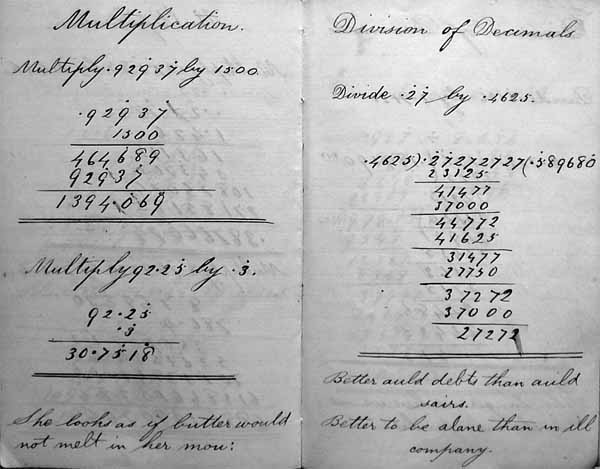 Multiplication.
Multiply ·929̇37̇ by 1500
·929̇37̇
1500
464·6̇89̇
929̇37̇
1394·0̇69̇
Multiply 92·25̇ by ·3̇.
92·25̇
·3̇
30·75̇18̇
She looks as if butter would
not melt in her mou:
Division of Decimals
Divide ·2̇7̇ by ·4625.
·4625)·2̇7̇272727(·5̇89680̇
23125
41477
37000
44772
41625
31477
27750
37272
37000
27272
Better auld debts than auld
sairs.
Better to be alane than in ill
company.